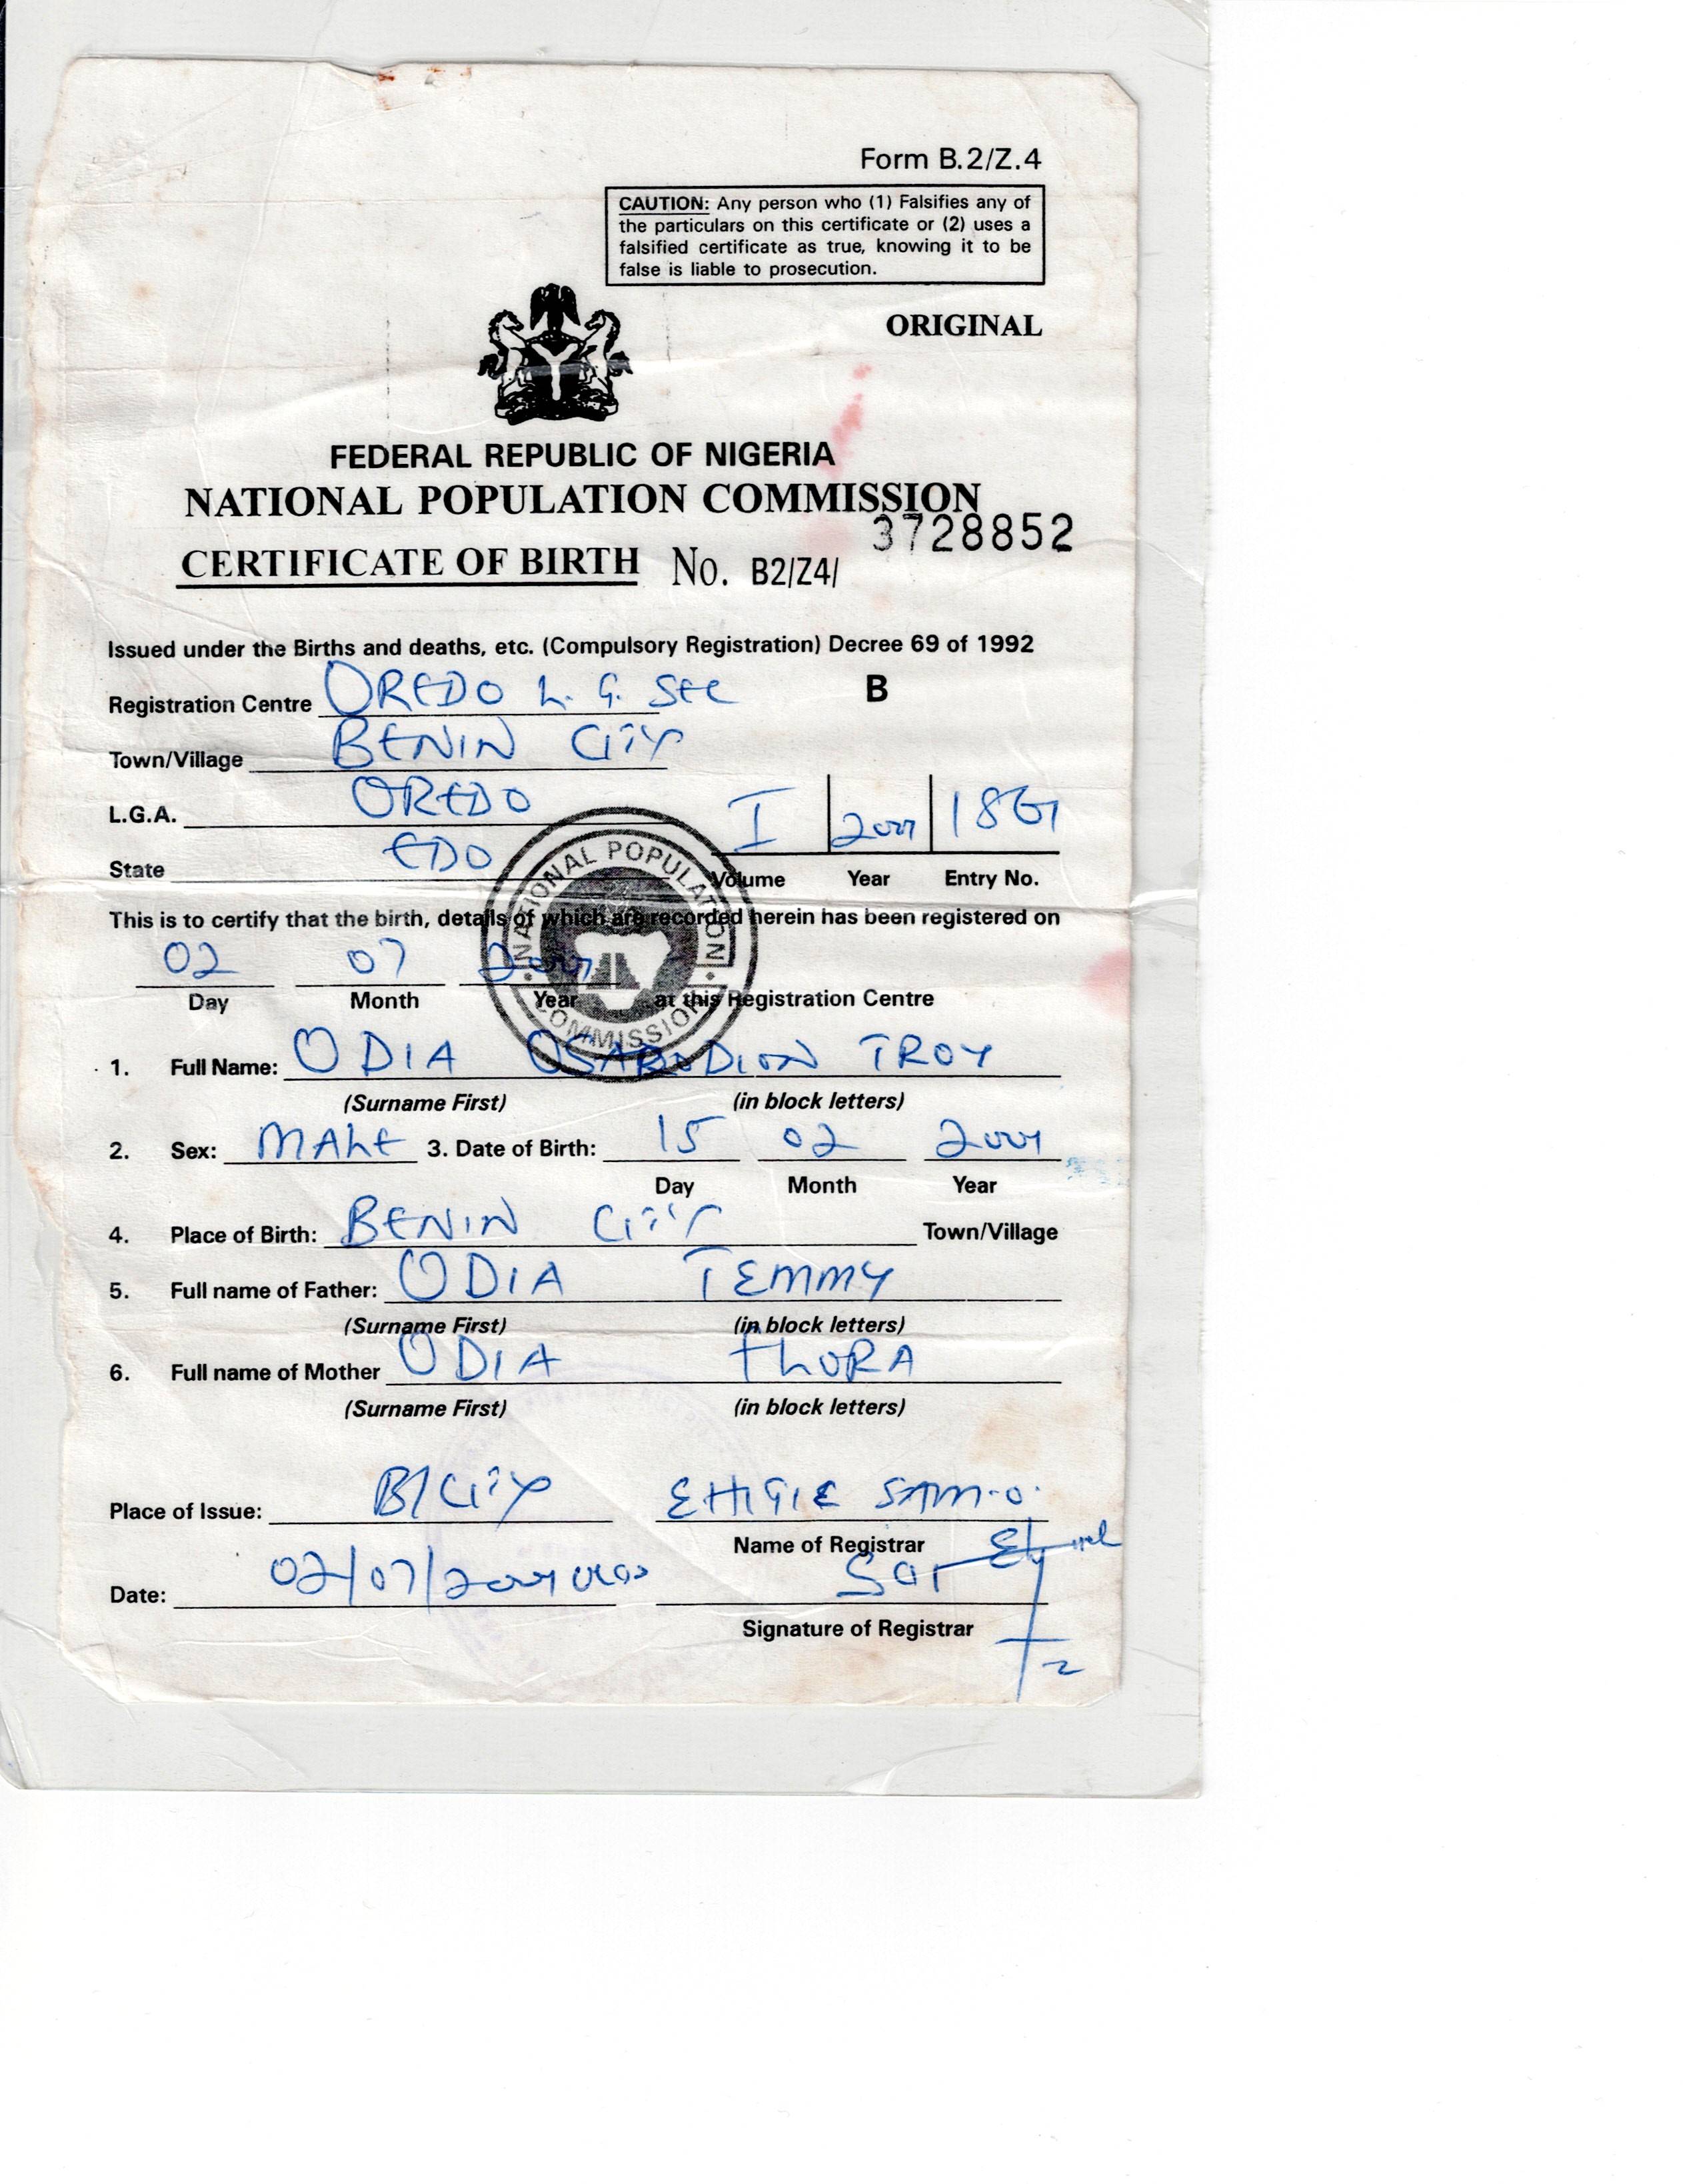 Form B.2/Z.4
CAUTION: Any person who (1) Falsifies any of
the particulars on this certificate or (2) uses a
falsified certificate as true, knowing it to be
false is liable to prosecution.
ORIGINAL
FEDERAL REPUBLIC OF NIGERIA
NATIONAL POPULATION COMMISSION
3728852
CERTIFICATE OF BIRTH No. B2/Z4/
Issued under the Births and deaths, etc. (Compulsory Registration) Decree 69 of 1992
Registration Centre OREDO L. G. SEC B
Town/Village BENIN CITY
L.G.A. OREDO I
State EDO Volume Year Entry No.
NATIONAL POPULATION COMMISSION
This is to certify that the birth, details of which are recorded herein has been registered on
02 07
Day Month Year at this Registration Centre
1. Full Name: ODIA TROY
(Surname First) (in block letters)
2. Sex: MALE 3. Date of Birth: 15 02
Day Month Year
4. Place of Birth: BENIN CITY Town/Village
5. Full name of Father: ODIA TEMMY
(Surname First) (in block letters)
6. Full name of Mother ODIA FLORA
(Surname First) (in block letters)
Place of Issue: B/CITY EHIGIE SAM.O.
Name of Registrar
Date: 02/07/
Signature of Registrar